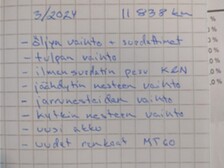 3/2024 11 838 km
- öljyn vaihto + suodattimet
- tulpan vaihto
- ilmansuodatin pesu K&N
- jäähdytin nesteen vaihto
- jarrunesteiden vaihto
- kytkin nesteen vaihto
- uusi akku
- uudet renkaat MT60